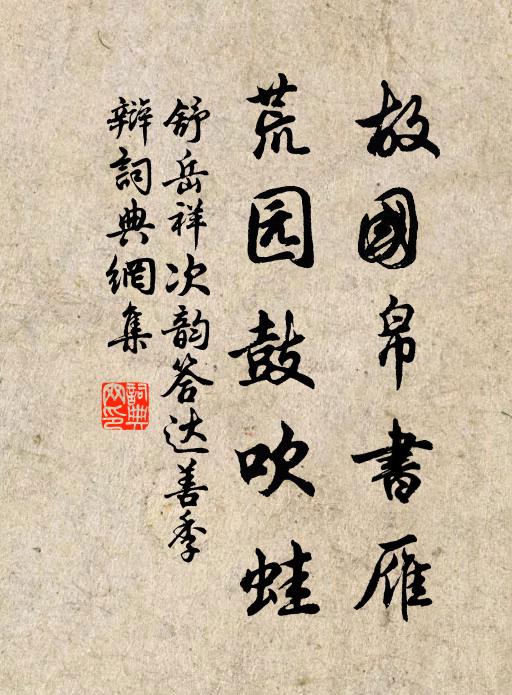 故國帛書雁
荒园鼓吹蛙
舒岳祥次韵答达善季
辩詞典網集
詞典网印